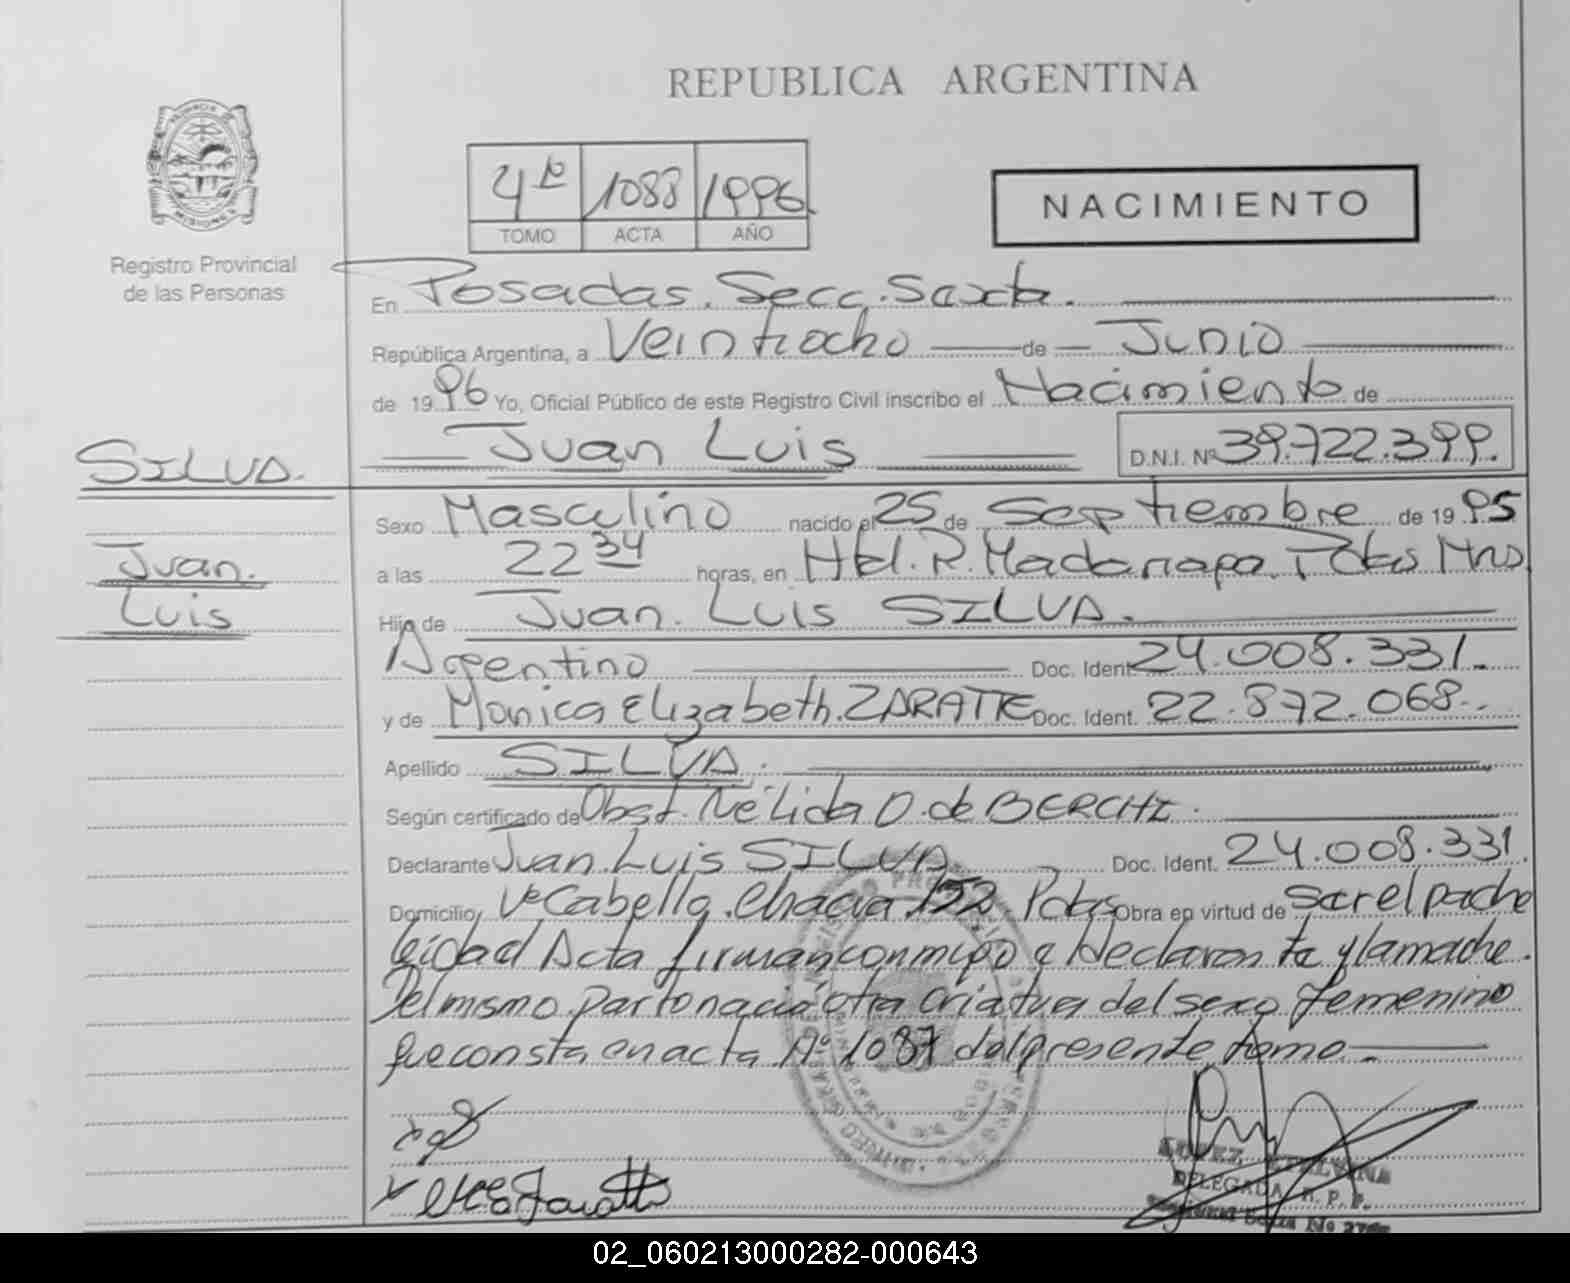 REPUBLICA ARGENTINA
4to 1088 1996
TOMO ACTA AÑO
NACIMIENTO
MISIONES
Registro Provincial
de las Personas
En Posadas. Secc. Sexta.
República Argentina, a Veintiocho de Junio
de 1996 Yo, Oficial Público de este Registro Civil inscribo el Nacimiento de
Juan Luis D.N.I. Nº 39.722.399.
SILVA.
Juan.
Luis
Sexo Masculino nacido el 25 de Septiembre de 1995
a las 22 34 horas, en Htal. R. Madariaga. Pdas Mns
Hijo de Juan. Luis SILVA.
Argentino Doc. Ident. 24.008.331.
y de Monica Elizabeth. ZARATTE Doc. Ident. 22.872.068.
Apellido SILVA.
Según certificado de Obst. Nélida D. de BERCHI.
Declarante Juan Luis SILVA Doc. Ident. 24.008.331.
Domicilio Vº Cabello. Chacra 152 Pdas Obra en virtud de ser el padre
leidad Acta firman conmigo e ldeclarante y la madre.
Del mismo parto nacia otra criatura del sexo femenino
que consta en acta Nº 1087 del presente tomo
DELEGADA R. P. P.
02_060213000282-000643